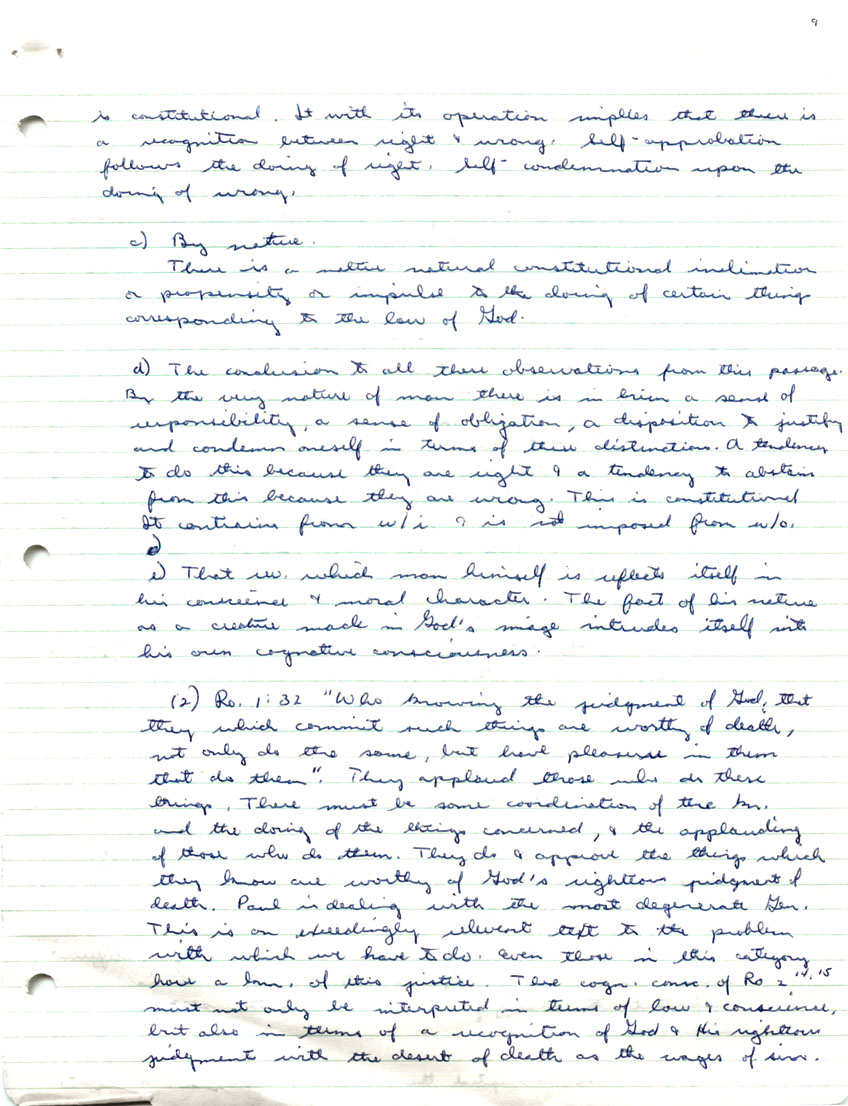 9
is constitutional. It with its operation implies that there is
a recognition between right & wrong. Self-approbation
follows the doing of right. Self-condemnation upon the
doing of wrong.
c) By nature.
There is a native natural constitutional inclination
or propensity or impulse to the doing of certain things
corresponding to the law of God.
d) The conclusion to all these observations from this passage.
By the very nature of man there is in him a sense of
responsibility, a sense of obligation, a disposition to justify
and condemn oneself in terms of these distinctions. A tendency
to do this because they are right & a tendency to abstain
from this because they are wrong. This is constitutional
It contrains from w/i & is not imposed from w/o.
e) That rev. which man himself is reflects itself in
his conscience & moral character. The fact of his nature
as a creature made in God's image intrudes itself into
his own cognative consciousness.
(2) Ro. 1:32 "Who knowing the judgment of God, that
they which commit such things are worthy of death,
not only do the same, but have pleasure in them
that do them". They applaud those who do these
things. There must be some coordination of the kn.
and the doing of the things concerned, & the applauding
of those who do them. They do & approve the things which
they know are worthy of God's righteous judgment of
death. Paul is dealing with the most degenerate Gen.
This is an exceedingly relevent text to the problem
with which we have to do. Even those in this category
have a kn. of this justice. The cogn. consc. of Ro 2 14,15
must not only be interpreted in terms of law & conscience,
but also in terms of a recognition of God & His righteous
judgment with the desert of death as the wages of sin.